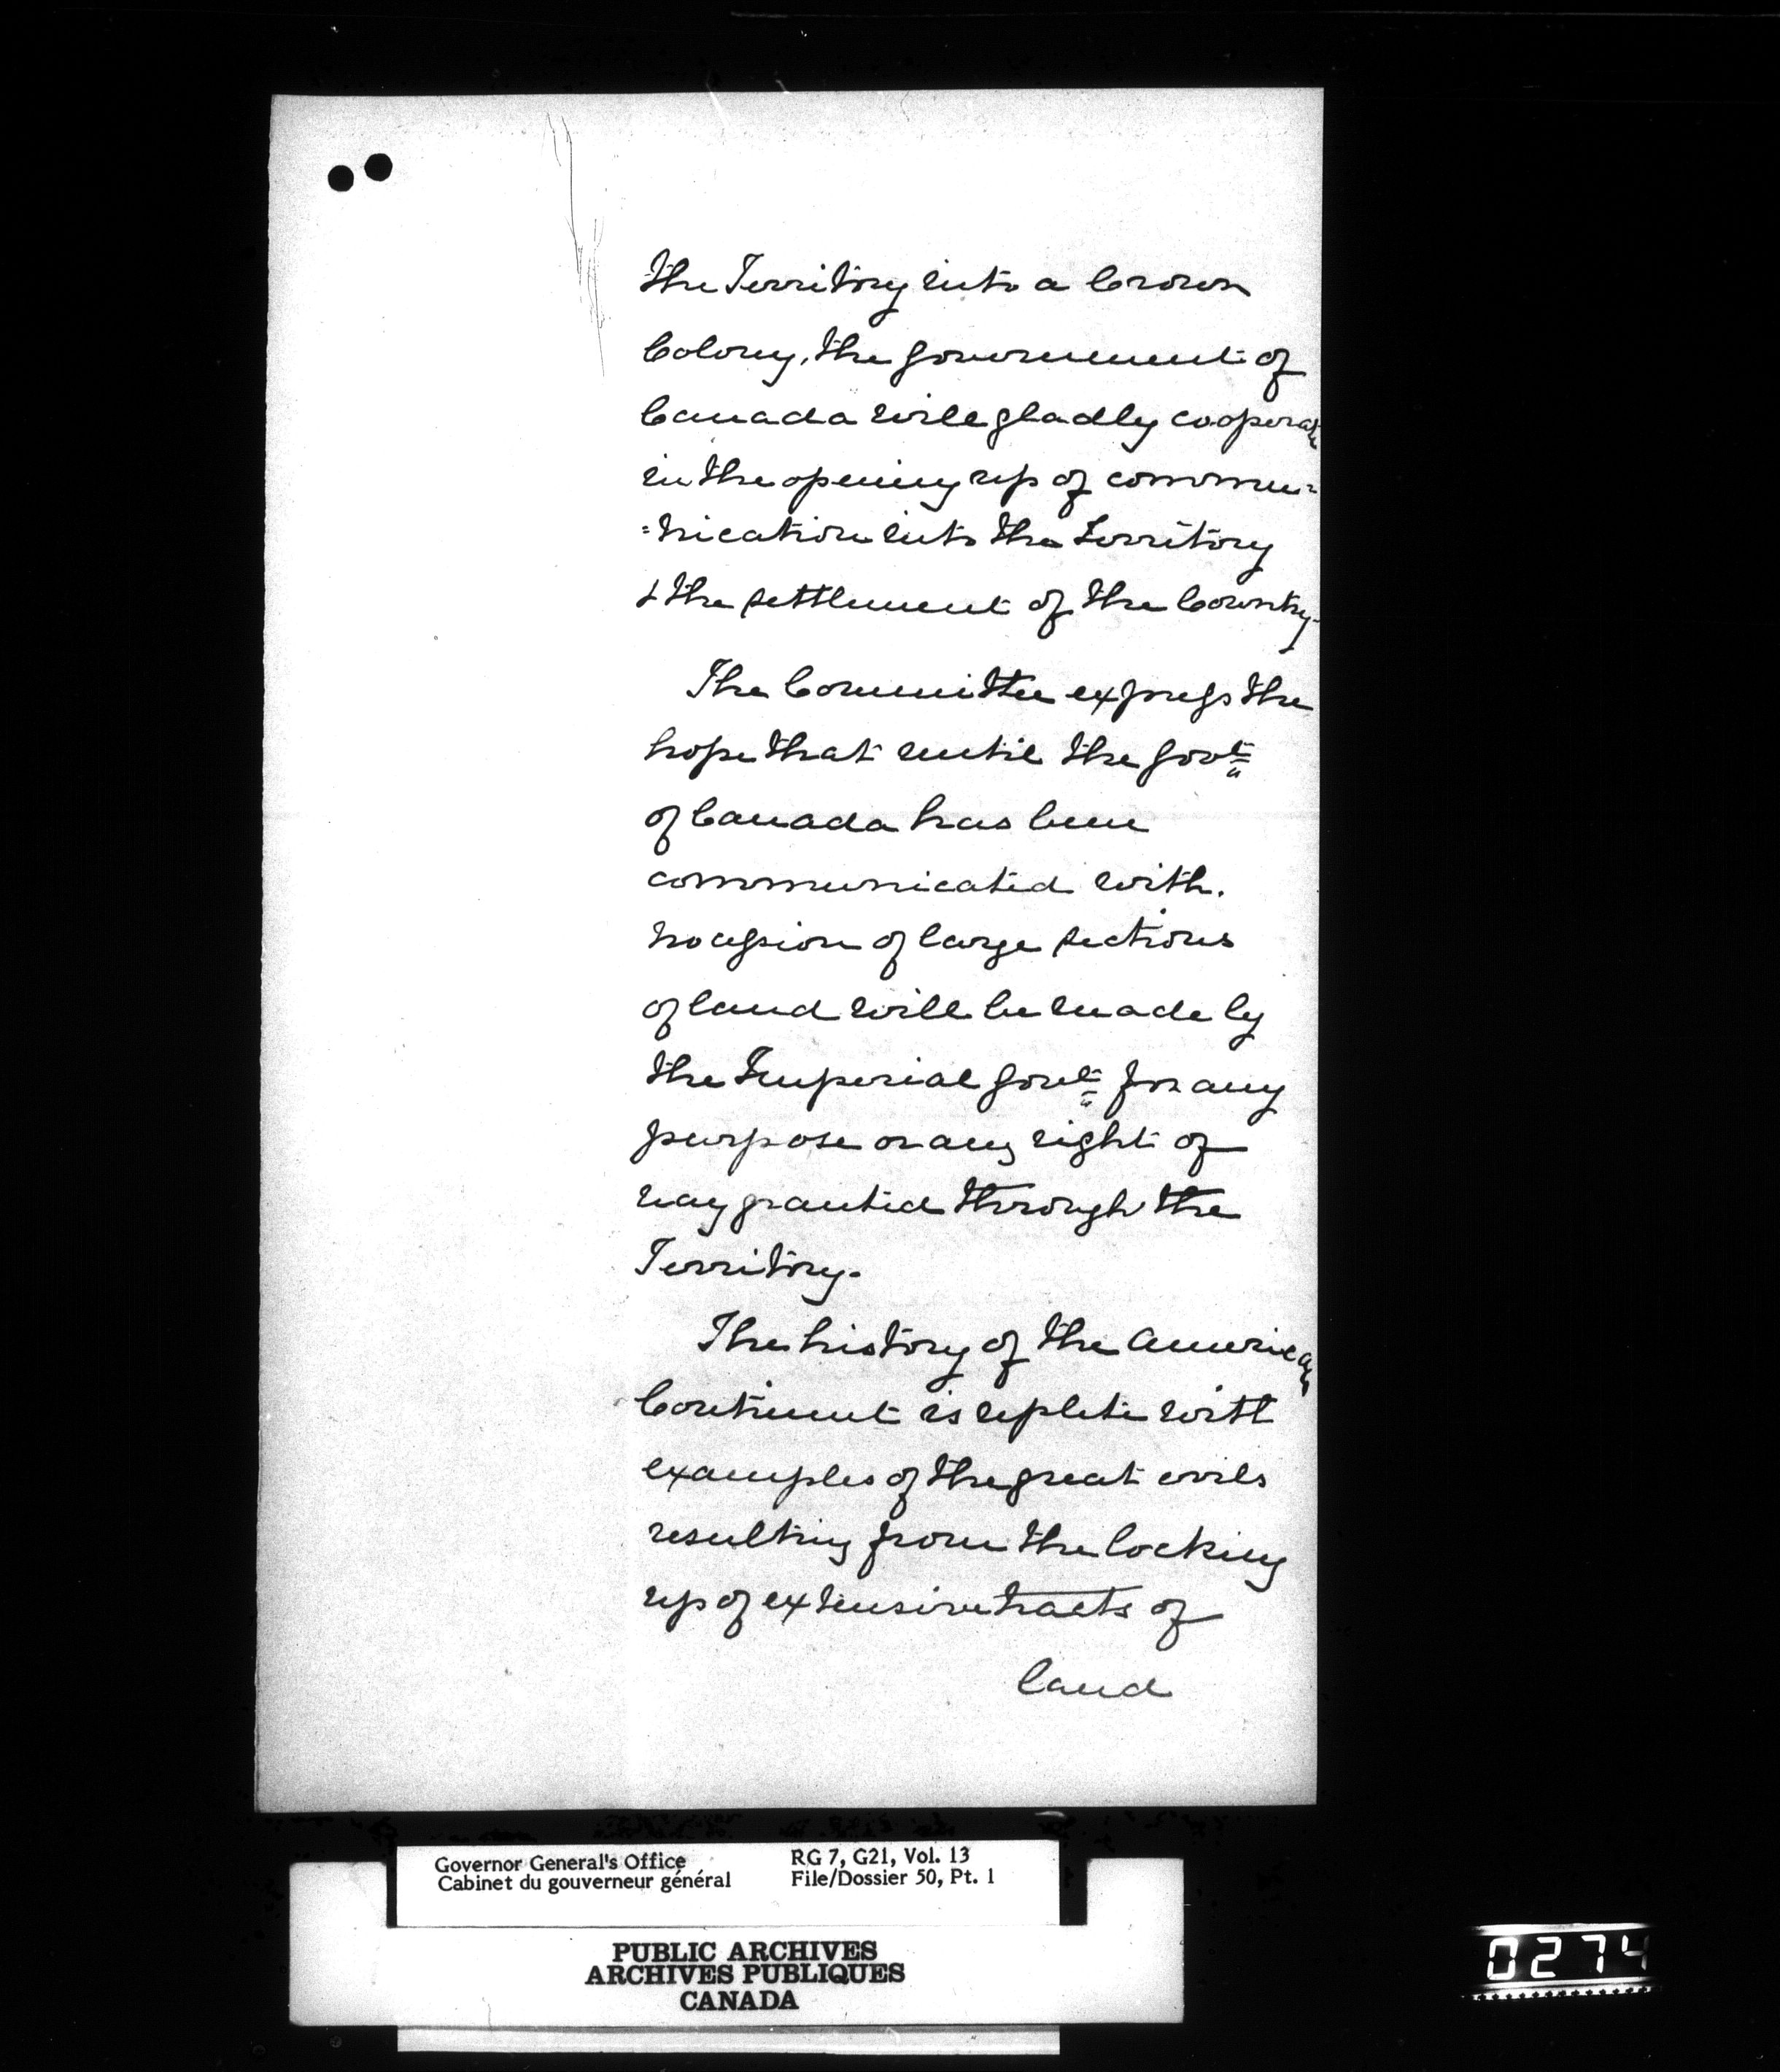 the Territory into a Crown
Colony, the government of
Canada will gladly cooperate
in the opening up of commu=
=nication into the territory
& the settlement of the Country.
The Committee express the
hope that until the Govt
of Canada has been
communicated with.
no cession of large sections
of land will be made by
the Imperial Govt for any
purpose or any right of
way granted through the
Territory.
The history of the American
Continent is replete with
examples of the great evils
resulting from the locking
up of extensive tracts of
land
Governor General's Office
Cabinet du gouverneur général
RG 7, G21, Vol. 13
File/Dossier 50, Pt. 1
PUBLIC ARCHIVES
ARCHIVES PUBLIQUES
CANADA
0274